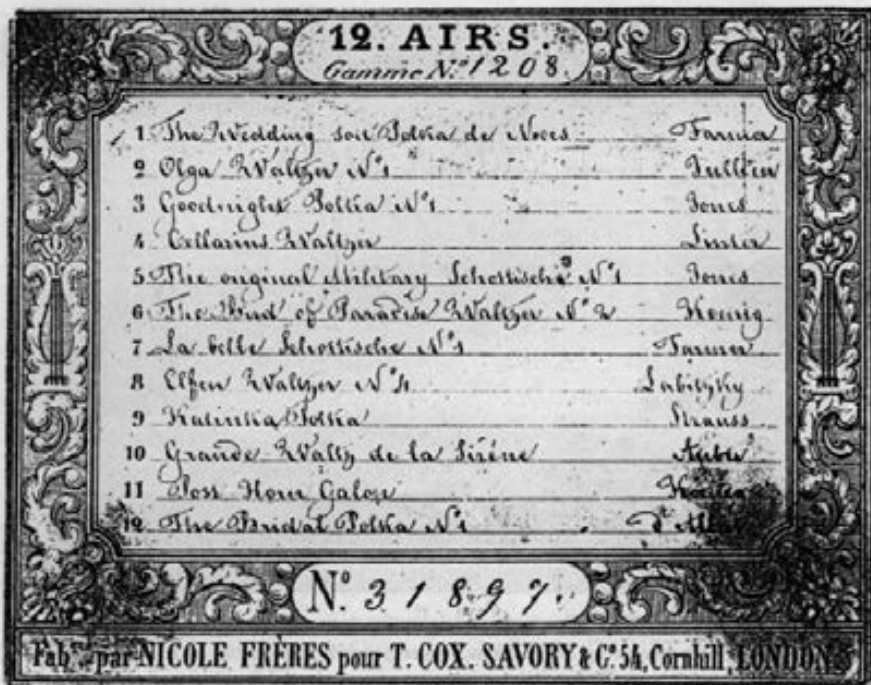 12. AIRS.
Gamme No. 1208.
1 The Wedding soit Polka de Noces Farmer
2 Olga Waltzer No. 1 Jullien
3 Goodnight Polka No. 1 Jones
4 Cellarius Waltzer Linter
5 The original Military Schottische No. 1 Jones
6 The Bird of Paradise Waltzer No. 2 Koenig
7 La belle Schottische No. 1 Farmer
8 Elfen Waltzer No. 4 Labitzky
9 Katinka Polka Strauss
10 Grande Waltz de la Sirène Auber
11 Post Horn Galop Koenig
12 The Bridal Polka No. 1
No. 31897.
Fabqué par NICOLE FRÈRES pour T. COX. SAVORY & Co. 54, Cornhill, LONDON